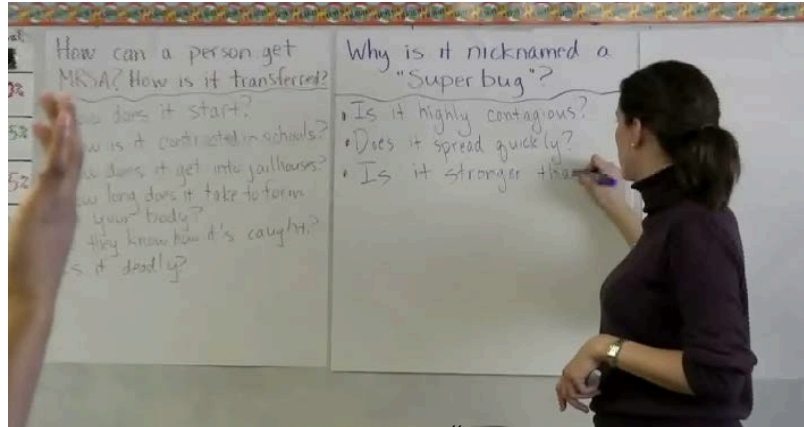 How can a person get
MRSA? How is it transferred?
does it start?
is it contracted in schools?
does it get into jailhouses?
long does it take to form
your body?
they know how it's caught?
it deadly?
Why is it nicknamed a
"Superbug"?
• Is it highly contagious?
• Does it spread quickly?
• Is it stronger tha